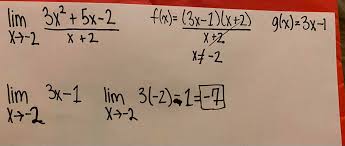 lim x→-2 (3x² + 5x - 2)/(x + 2) f(x) = (3x-1)(x+2)/(x+2) x ≠ -2 g(x) = 3x-1
lim x→-2 3x-1 lim x→-2 3(-2)-1 = -7